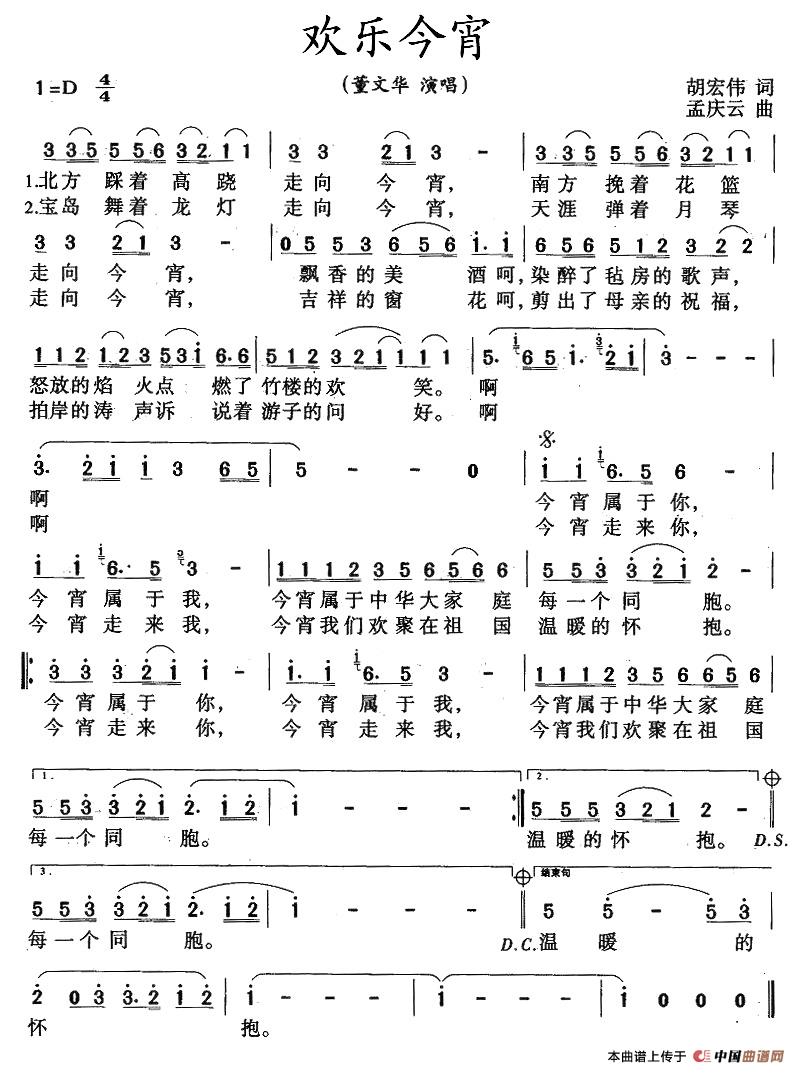 欢乐今宵
1=D 4/4 （董文华 演唱） 胡宏伟 词
孟庆云 曲
3 3 5 5 5 6 3 2 1 1 3 3 2 1 3 - 3 3 5 5 5 6 3 2 1 1
1.北方 踩着 高 跷 走向 今 宵， 南方 挽着 花 篮
2.宝岛 舞着 龙 灯 走向 今 宵， 天涯 弹着 月 琴
3 3 2 1 3 - 0 5 5 3 6 5 6 1· 1 6 5 6 5 1 2 3 2 2
走向 今 宵， 飘香的美 酒呵，染醉了毡房的歌声，
走向 今 宵， 吉祥的窗 花呵，剪出了母亲的祝福，
1 1 2 1 2 3 5 3 1 6·6 5 1 2 3 2 1 1 1 1 5· 6 5 1· 2 1 3 - - -
怒放的焰 火点 燃了 竹楼的欢 笑。 啊
拍岸的涛 声诉 说着 游子的问 好。 啊
3· 2 1 1 3 6 5 5 - - 0 1 1 6· 5 6 -
啊 今宵属于你，
啊 今宵走来你，
1 1 6· 5 3 - 1 1 1 2 3 5 6 5 6 6 5 5 3 3 2 1 2 -
今宵属于我， 今宵属于中华大家 庭 每一个同 胞。
今宵走来我， 今宵我们欢聚在祖 国 温暖的怀 抱。
3 3 3 2 1 1 - 1· 1 6· 5 3 - 1 1 1 2 3 5 6 6 5 6
今宵属于 你， 今宵属于我， 今宵属于中华大家 庭
今宵走来 你， 今宵走来我， 今宵我们欢聚在祖 国
1. 2.
5 5 3 3 2 1 2· 1 2 1 - - - 5 5 5 3 2 1 2 -
每一个同 胞。 温暖的怀 抱。 D.S.
3. 结束句
5 5 3 3 2 1 2· 1 2 1 - - - 5 5 - 5 3
每一个同 胞。 D.C. 温 暖 的
2 0 3 3· 2 1 2 1 - - - 1 - - - 1 0 0 0
怀 抱。
本曲谱上传于 中国曲谱网